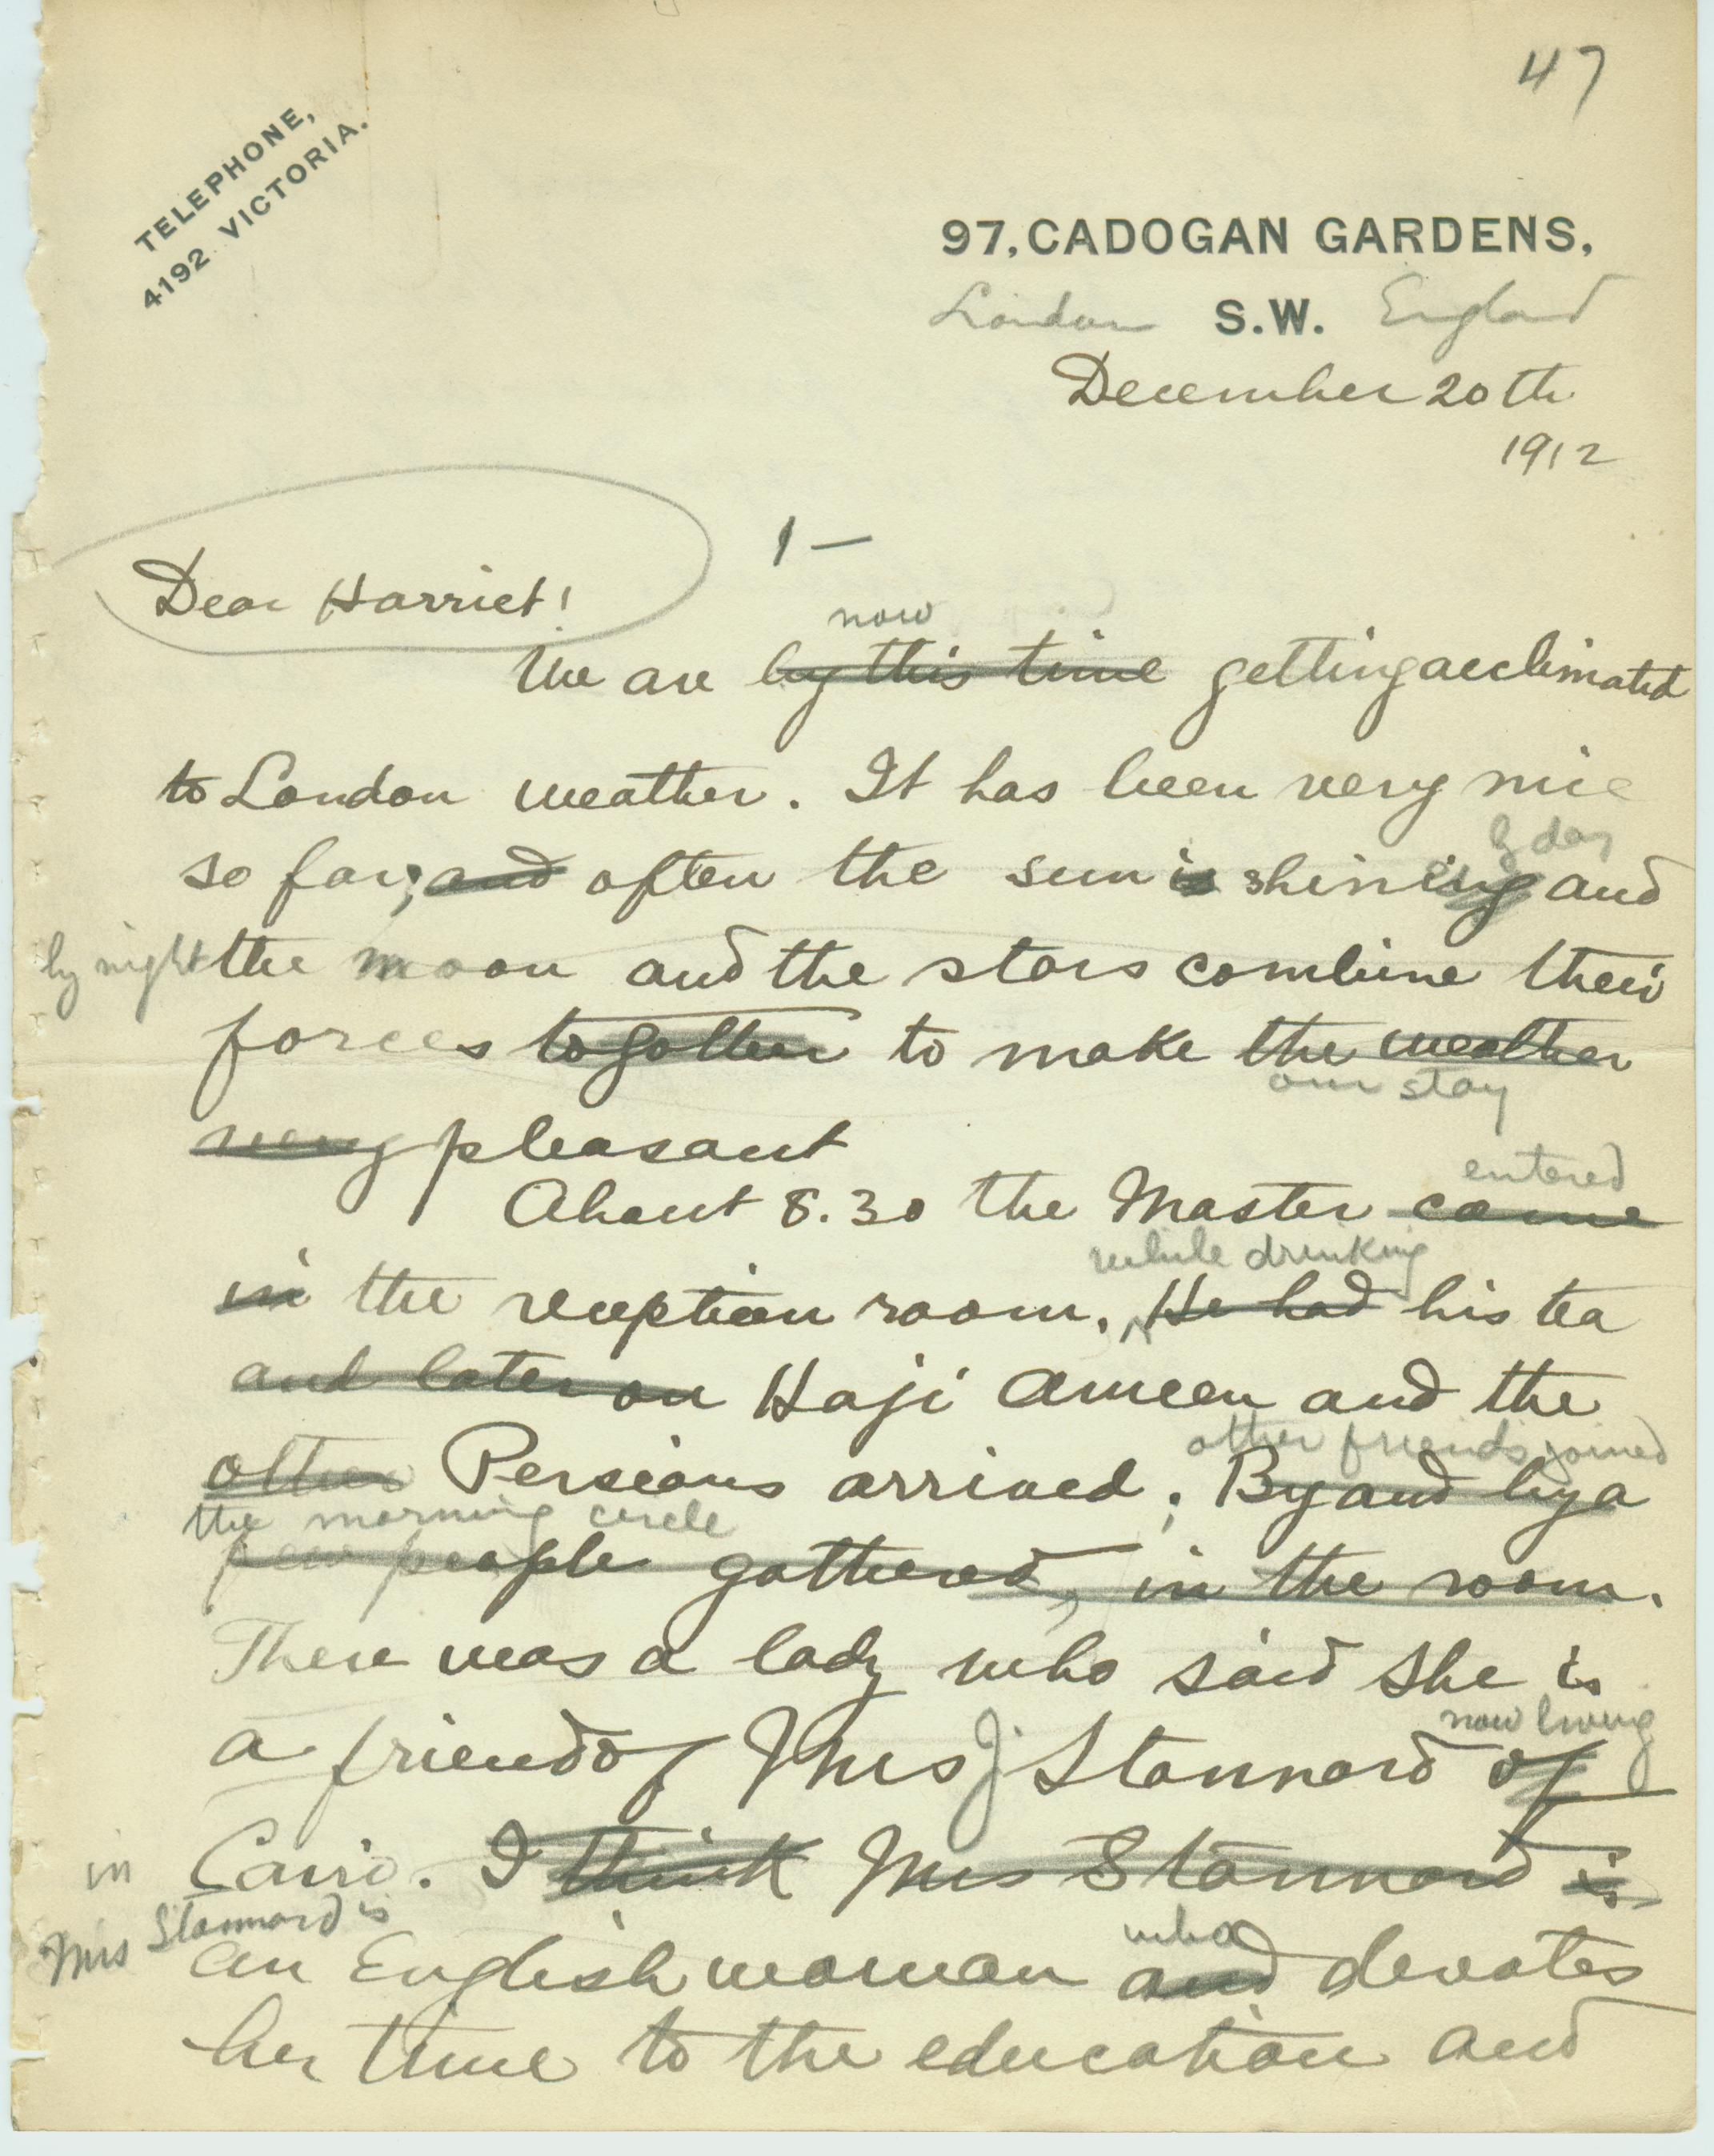 47
TELEPHONE,
4192 VICTORIA.
97, CADOGAN GARDENS,
London S.W. England
December 20th
1912
1 —
Dear Harriet!
now
We are by this time getting acclimated
to London weather. It has been very nice
by day
so far; and often the sun is shining and
by night the moon and the stars combine their
forces together to make the weather
our stay
very pleasant
entered
About 8.30 the Master came
while drinking
in the reception room. He had his tea
and later on Haji Ameen and the
other friends joined
other Persians arrived; By and by a
the morning circle
few people gathered, in the room.
There was a lady who said she is
now living
a friend of Mrs J. Stannard of
in Cairo. I think Mrs Stannard is
Mrs Stannard is
who
an English woman and devotes
her time to the education and